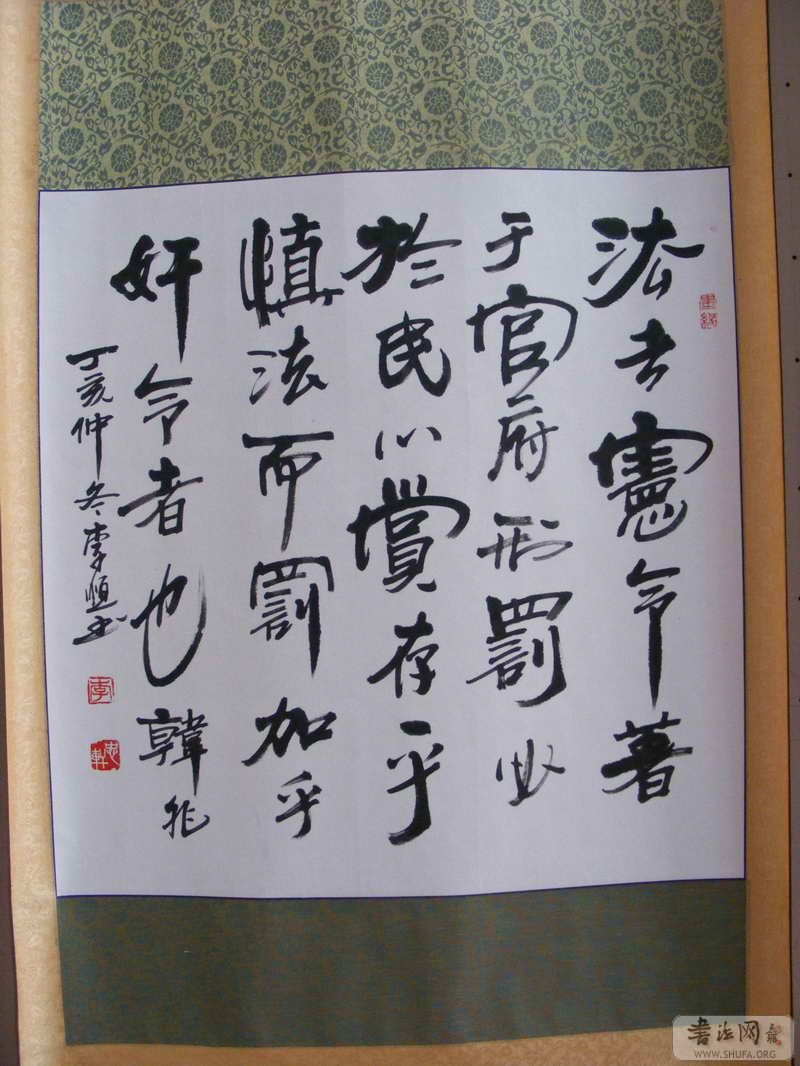 法者憲令著
于官府刑罰必
於民心賞存乎
慎法而罰加乎
奸令者也韓非
丁亥仲冬李恒书
李
書法网
WWW.SHUFA.ORG